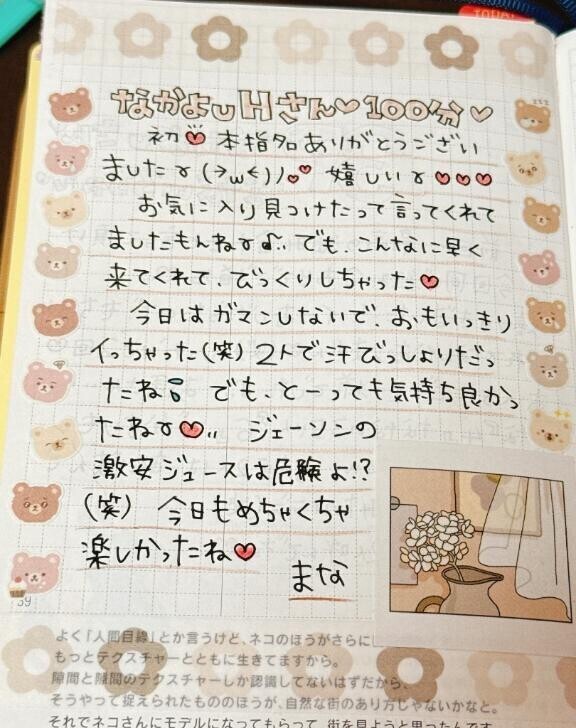 なかよしHさん♡100分♡
初♡本指名ありがとうござい
ましたɤ(>ω<)ﾉ♡♡ 嬉しいɤ♡♡♡
お気に入り見つけたって言ってくれて
ましたもんねɤ♪.. でも、こんなに早く
来てくれて、びっくりしちゃった♡
今日はガマンしないで、おもいっきり
イっちゃった(笑)2人で汗びっしょりだっ
たね でも、とーっても気持ち良かっ
たねɤ♡.. ジェーソンの
激安ジュースは危険よ!?
(笑) 今日もめちゃくちゃ
楽しかったね♡
まな
39
よく「人間目線」とか言うけど、ネコのほうがさらに
もっとテクスチャーとともに生きてますから。
隙間と隙間のテクスチャーしか認識してないはずだから、
そうやって捉えられたもののほうが、自然な街のあり方じゃないかなと。
それでネコさんにモデルになってもらって、街を見ようと思ったんです